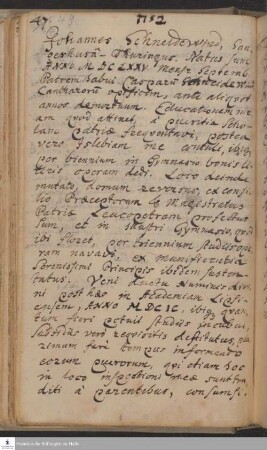 47.
1712
Johannes Schneidewind, Son-
Thuringus. Natus sum
ANNO M DC LXXV mense Septemb.
Patrem habui Casparum Schneidewind
opificem, ante aliquot
annos demortuum. Educationem me
am quod attinet, à pueritia Scho-
lam Patriæ frequentavi, postea
vero Islebiam me contuli, ibiq;
per biennium in Gymnasio bonis li-
teris operam dedi. Loco deinde
mutato, domum reversus, ex consi-
lio Præceptorum & Magistratus
Patriæ Leucopetram profectus
sum, et in illustri Gymnasio, quod
ibi floret, per triennium studiis ope-
ram navavi, ex munificentia
Serenissimi Principis ibidem susten-
tatus. Veni ductu Numinis divi-
ni post hæc in Academiam Lipsi-
ensem, ANNO MDCIC, ibiq; quan-
tum fieri potuit studiis incubui,
subsidiis vero requisitis destitutus, plu-
rimum fere tempus informando
eorum puerorum, qui etiam hoc
in loco inspectioni meæ sunt tra-
diti à parentibus, consumsi.